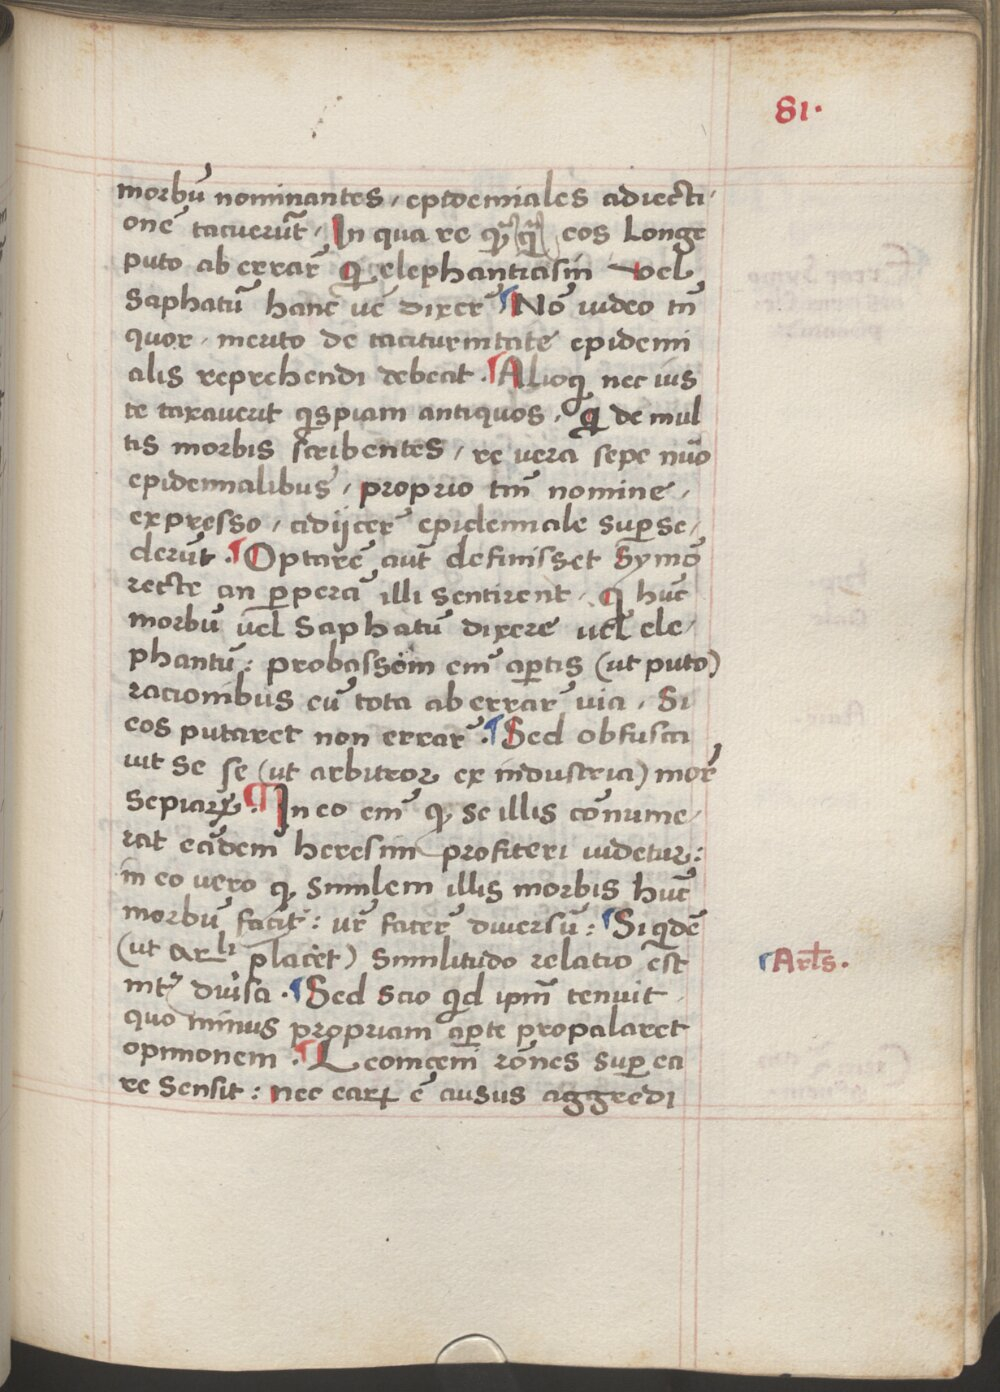 81.
morbū nominantes, epidemiales adiecti-
onē tacuerūt. In qua re eos Longe
puto aberrarē qui elephantiasin vel
Saphatū hanc uē dixerē. Nō video tn̄
quor merito de taciturnitate epidemi
alis reprehendi debeat. Alioqi nec ius
te taxaverit qispiam antiquos, qi de mul
tis morbis scribentes, re vera sepe nūo
epidemialibus, proprio tm̄ nomine,
expresso, adijcerē epidemiale supse,
derūt. Optarē aut̄ definisset Symō
recte an pperā illi sentirent, qi hūc
morbū vel Saphatū dixere vel ele,
phantū: probassom em̄ aptis (ut puto)
racionibus eū tota ab errarē via, Si
eos putaret non errarē. Sed obfusca
vit se se (ut arbitror ex industria) morē
Sepiarꝝ. In eo em̄ qꝫ se illis cōnume,
rat eādem heresim profiteri videtur:
in eo vero qꝫ similem illis morbis hūc
morbū facit: ur̄ facerē diversū: Siqidē
(ut Arli placet) Similitudo relatio est
mtꝰ divisa. Sed scio qid ipm̄ tenuit
quo minus propriam apte propalaret
opinionem. Leoniceni rōnes sup ea
re sensit: nec earꝝ ē ausus aggredi
Artls.